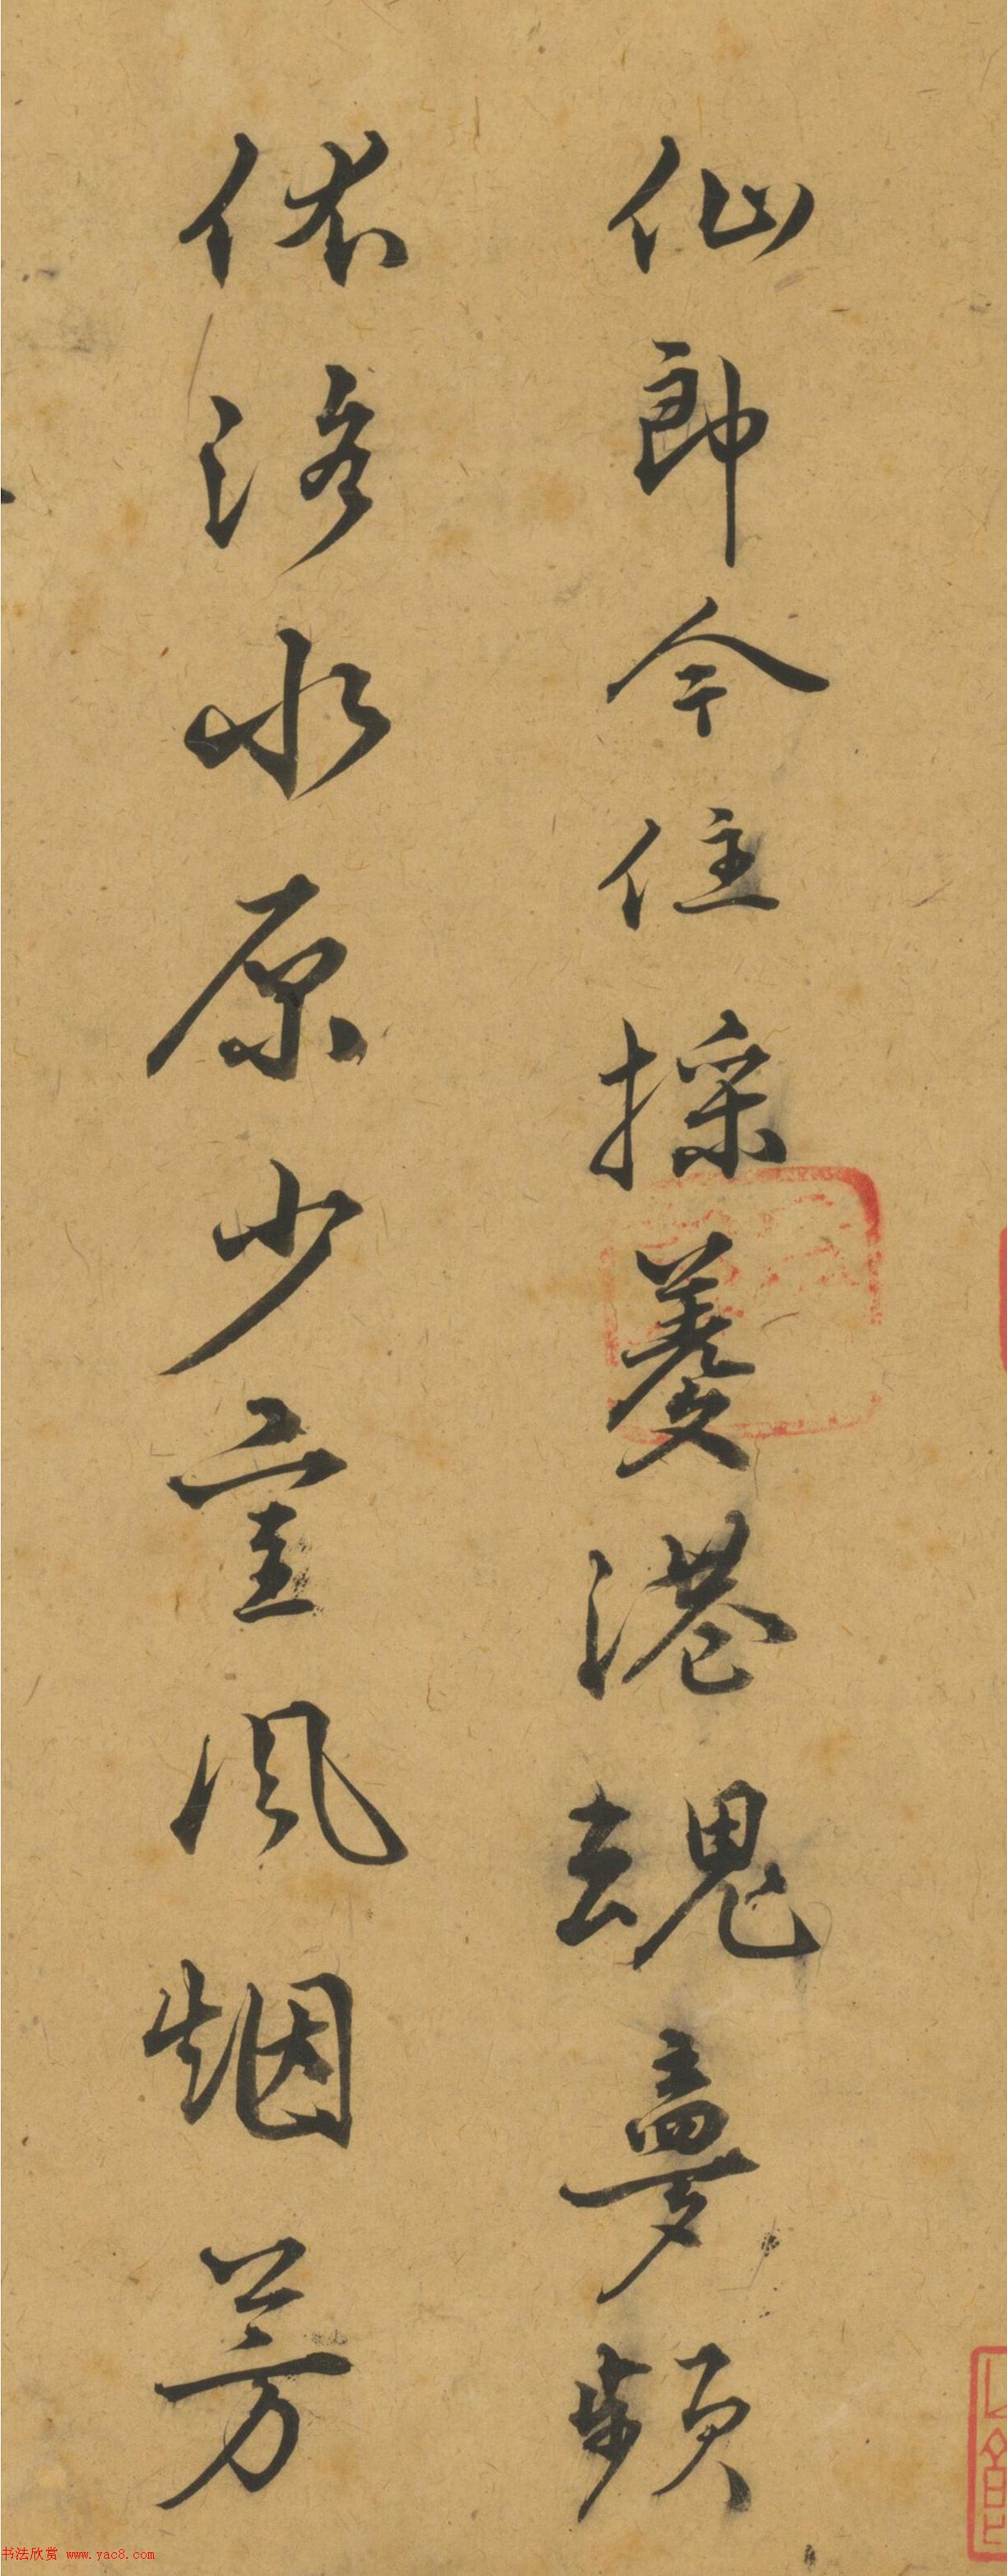 仙郎今住採菱港魂夢頻
依洛水原少室風烟芳
书法欣赏 www.yac8.com